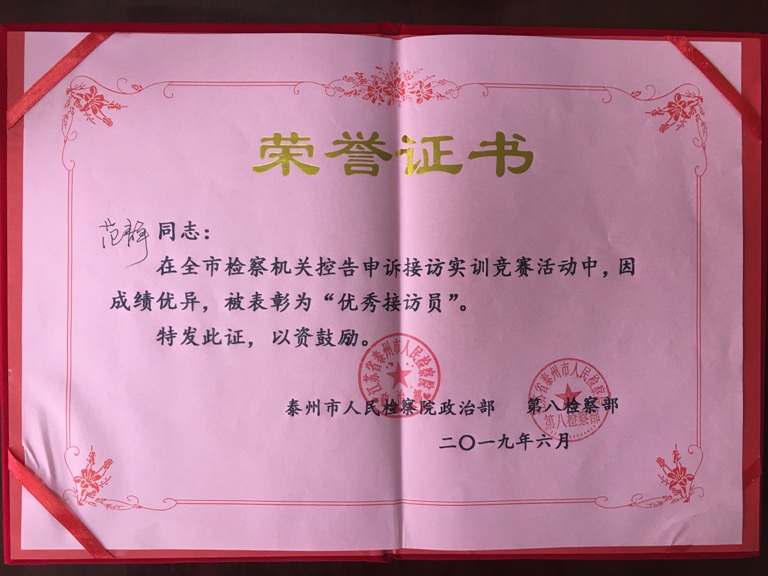 荣誉证书
范静同志：
在全市检察机关控告申诉接访实训竞赛活动中，因
成绩优异，被表彰为“优秀接访员”。
特发此证，以资鼓励。
江苏省泰州市人民检察院
江苏省泰州市人民检察院
第八检察部
泰州市人民检察院政治部 第八检察部
二〇一九年六月